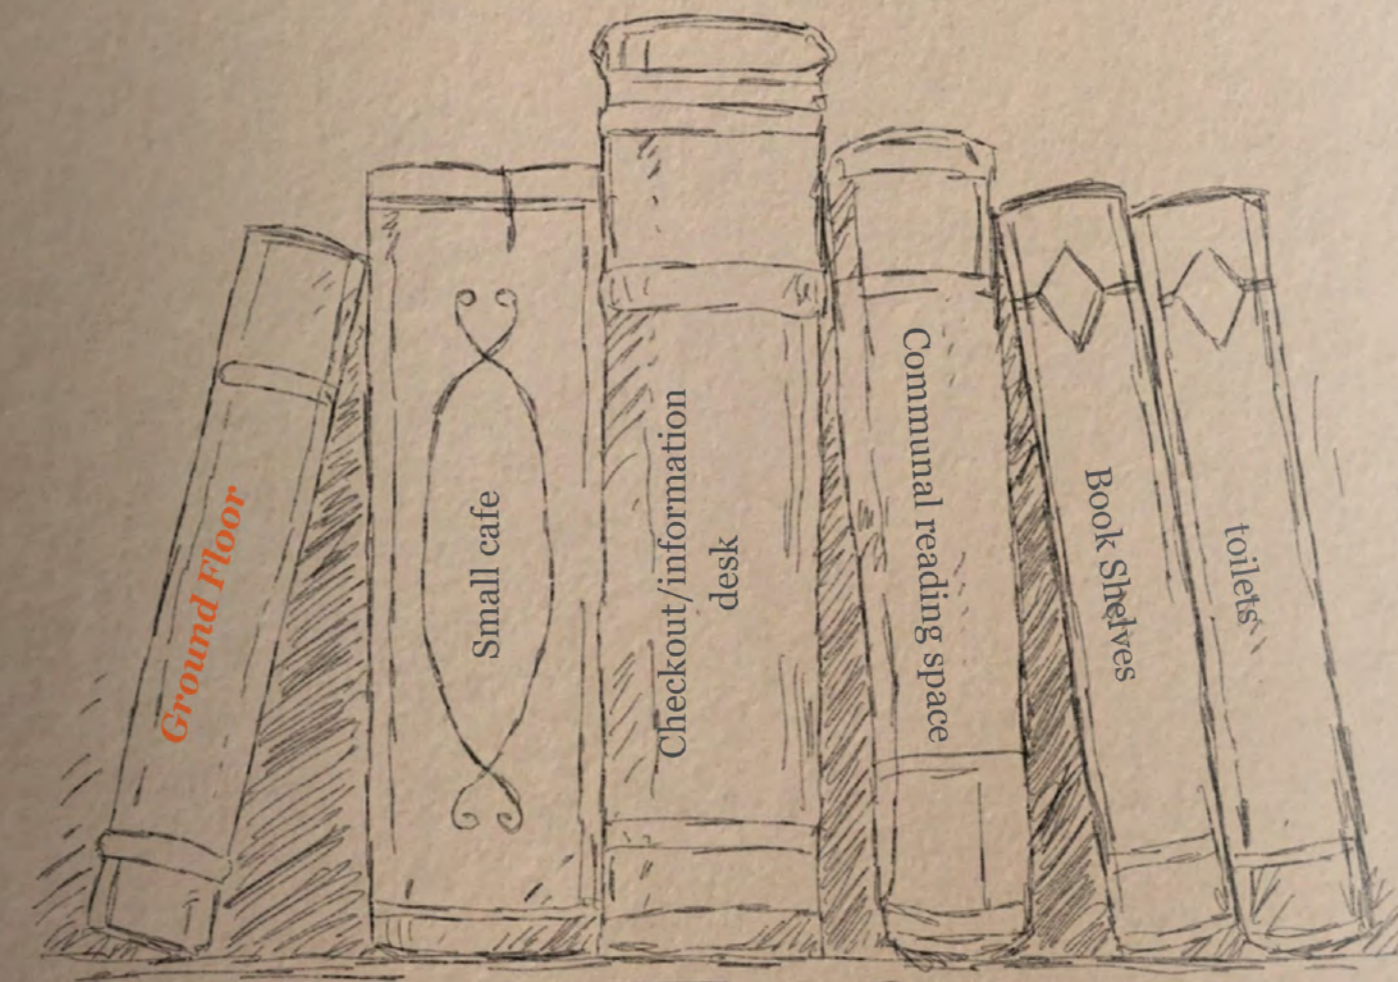 Ground Floor
Small cafe
Checkout/information
desk
Communal reading space
Book Shelves
toilets